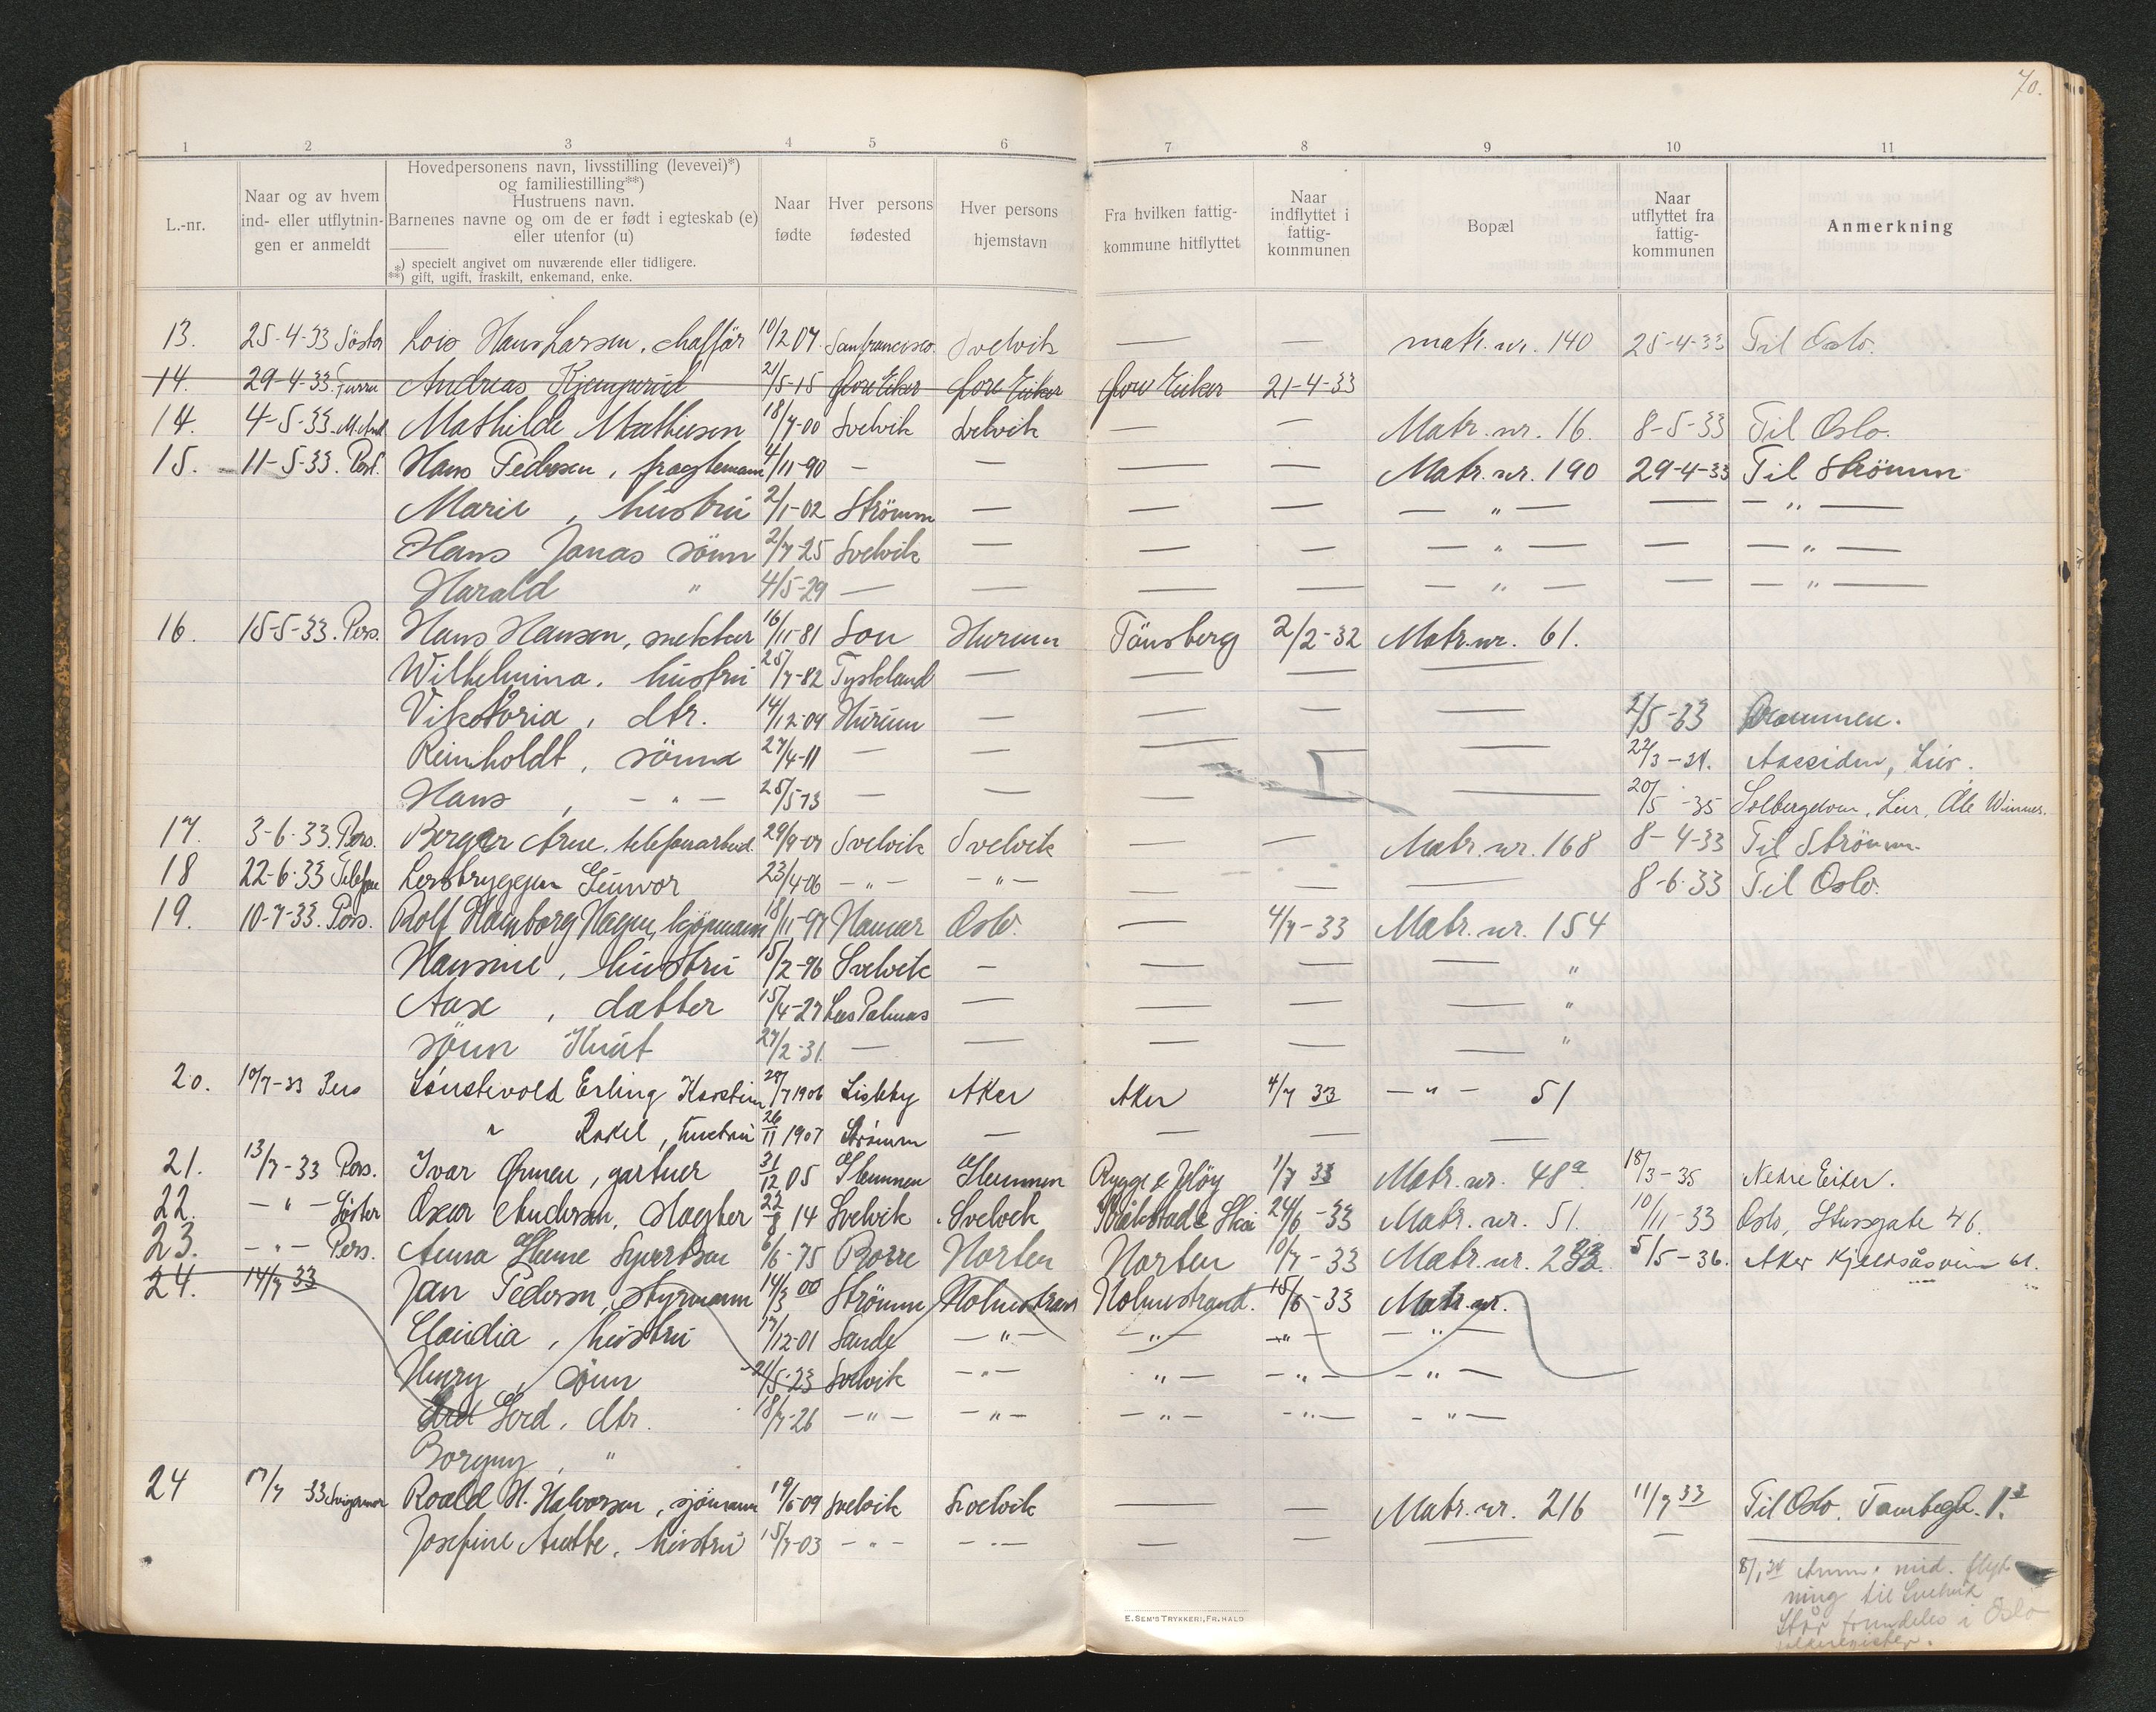 70.
1 2 3 4 5 6 7 8 9 10 11
L.-nr.
Naar og av hvem
ind- eller utflytnin-
gen er anmeldt
Hovedpersonens navn, livsstilling (levevei)*)
og familiestilling**)
Hustruens navn.
Barnenes navne og om de er født i egteskab (e)
eller utenfor (u)
*) specielt angivet om nuværende eller tidligere.
**) gift, ugift, fraskilt, enkemand, enke.
Naar
fødte
Hver persons
fødested
Hver persons
hjemstavn
Fra hvilken fattig-
kommune hitflyttet
Naar
indflyttet i
fattig-
kommunen
Bopæl
Naar
utflyttet fra
fattig-
kommunen
Anmerkning
13. 25-4-33 Søster Lois Hans Larsen, chaffør 10/2 07 Sanfrancisco Svelvik — — matr. nr. 140 25-4-33 Til Oslo.
14. 29-4-33 Andreas Kjemperud 21/5-15 Øvre Eiker Øvre Eiker Øvre Eiker 21-4-33
14. 4-5-33 Mathilde Mathisen 18/7-00 Svelvik Svelvik — — Matr. nr. 16. 8-5-33 Til Oslo.
15. 11-5-33. Pers. Hans Pedersen, fragtemann 4/11-90 — — — — Matr. nr. 190 29-4-33 Til Strömm
Marie, hustru 2/1-02 Strömm — — — — " — — — " —
Hans Jonas sönn 2/7-25 Svelvik — — — — " — — — " —
Harald " 4/5-29 — — — — — " — — — " —
16. 15-5-33. Pers. Hans Hansen, snekker 16/11-81 Son Hurum Tönsberg 2/2-32 Matr. nr. 61.
Wilhelmina, hustru 25/7-82 Tyskland — — — —
Viktoria, dtr. 14/12-09 Hurum — — — — 2/5-33 Drammen.
Reinholdt, sönn 27/4-11 — — — — 22/3-34. Aassiden, Lier.
Hans, — " — 25/5 13 — — — — 20/5-35 Solbergelven, Lier, Ole Winnes.
17. 3-6-33. Pers. Berger Arne, telefonarbeid. 29/9-07 Svelvik Svelvik — — Matr. nr. 168 8-4-33 Til Strömm
18 22-6-33 Telefon Lersbryggen Gunvor 23/4-06 — " — — " — — — — 8-6-33 Til Oslo.
19. 10-7-33. Pers. Rolf Hamborg Hagen, kjøpmann 18/11-97 Hamar Oslo. — 4/7-33 Matr. nr. 154
Hansine, hustru 15/2-96 Svelvik — — — — "
Aase, datter 15/4-27 Las Palmas — — — — "
sönn Knut 27/2-31 — — — — — "
20. 10/7-33 Pers Erling Karstein 28/7 1906 Lisleby Aker Aker 4/7 33 — " — 51
" Rakel, hustru 26/11 1907 Strömm — — — —
21. 13/7-33 Pers. Ivar Ormen, gartner 31/12 05 Glemmen Glemmen Rygge & Jeløy 1/7 33 Matr. nr. 48a. 18/3-35 Nedre Eiker.
22. — " — Søster Oscar Andersen, slagter 22/8 14 Svelvik Svelvik Kråkstad & Ski 24/6-33 Matr. nr. 51. 10/11-33 Oslo, gate 46.
23. — " — Pers. Anna Syvertsen 6/6-75 Borre Horten Horten 10/7-33 Matr. nr. 5/5-36. Aker Kjelsåsveien 61.
24. 14/7 33 Jan Pedersen, styrmann 14/3 00 Strömm Holmestrand Holmestrand. 15/6-33 Matr. nr.
Claudia, hustru 17/12-01 Sande — " — — " — — " — — " —
Henry, sönn 21/5-23 Svelvik — " — " — — " — — " —
Gerd, dtr. 18/7-26 — " — — " — — " — — " — — " —
Borgny, "
24 17/7-33 Roald H. Halvorsen, sjömann 19/6-09 Svelvik Svelvik — — Matr. nr. 216 11/7 33 Til Oslo.
Josefine Anette, hustru 15/7-03 — " — — " — — — — — —
8/1 34 Anm. mid. flyt-
ning til Svelvik
Står fremdeles i Oslo
E. SEM'S TRYKKERI, FR.HALD